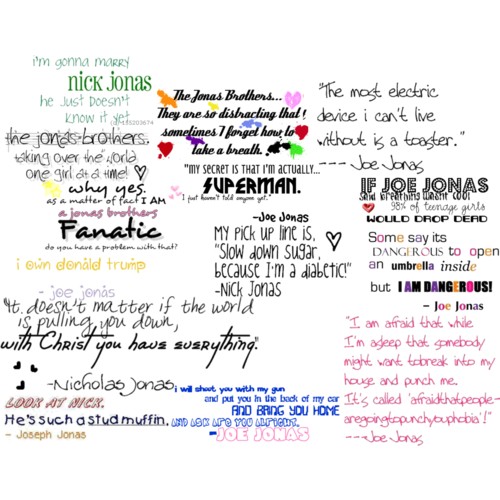 i'm gonna marry
nick jonas
he just doesn't
know it yet
the jonas brothers.
taking over the world
one girl at a time!
why yes.
as a matter of fact I AM
a jonas brothers
Fanatic
do you have a problem with that?
i own donald trump
- joe jonas
"It doesn't matter if the world
is pulling you down,
with Christ you have everything."
-Nicholas Jonas
LOOK AT NICK.
He's such a stud muffin.
- Joseph Jonas
The Jonas Brothers...
They are so distracting that
sometimes I forget how to
take a breath.
"MY SECRET IS THAT I'M ACTUALLY...
SUPERMAN.
I just haven't told anyone yet."
-Joe Jonas
My pick up line is,
"Slow down sugar,
because I'm a diabetic!"
-Nick Jonas
i will shoot you with my gun
and put you in the back of my car
AND BRING YOU HOME
AND ASK ARE YOU ALRIGHT.
-JOE JONAS
"The most electric
device i can't live
without is a toaster."
--- Joe Jonas
IF JOE JONAS
said breathing wasn't cool
98% of teenage girls
WOULD DROP DEAD
Some say its
DANGEROUS to open
an umbrella inside
but I AM DANGEROUS!
- Joe Jonas
"I am afraid that while
I'm asleep that somebody
might want tobreak into my
house and punch me.
It's called 'afraidthatpeople-
aregoingtopunchyouphobia'!"
---Joe Jonas